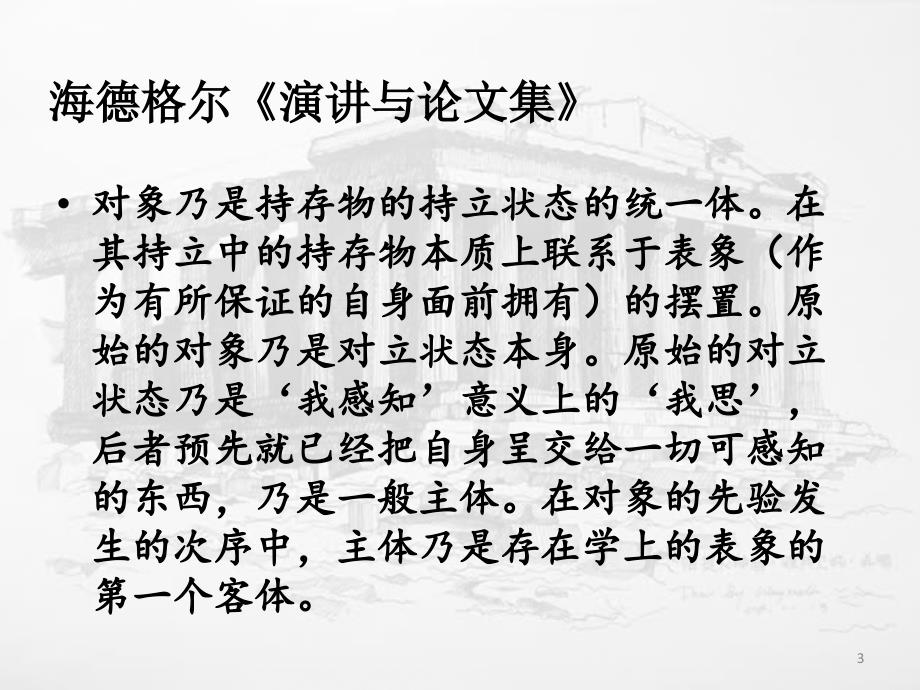 海德格尔《演讲与论文集》
• 对象乃是持存物的持立状态的统一体。在
其持立中的持存物本质上联系于表象（作
为有所保证的自身面前拥有）的摆置。原
始的对象乃是对立状态本身。原始的对立
状态乃是‘我感知’意义上的‘我思’，
后者预先就已经把自身呈交给一切可感知
的东西，乃是一般主体。在对象的先验发
生的次序中，主体乃是存在学上的表象的
第一个客体。
3